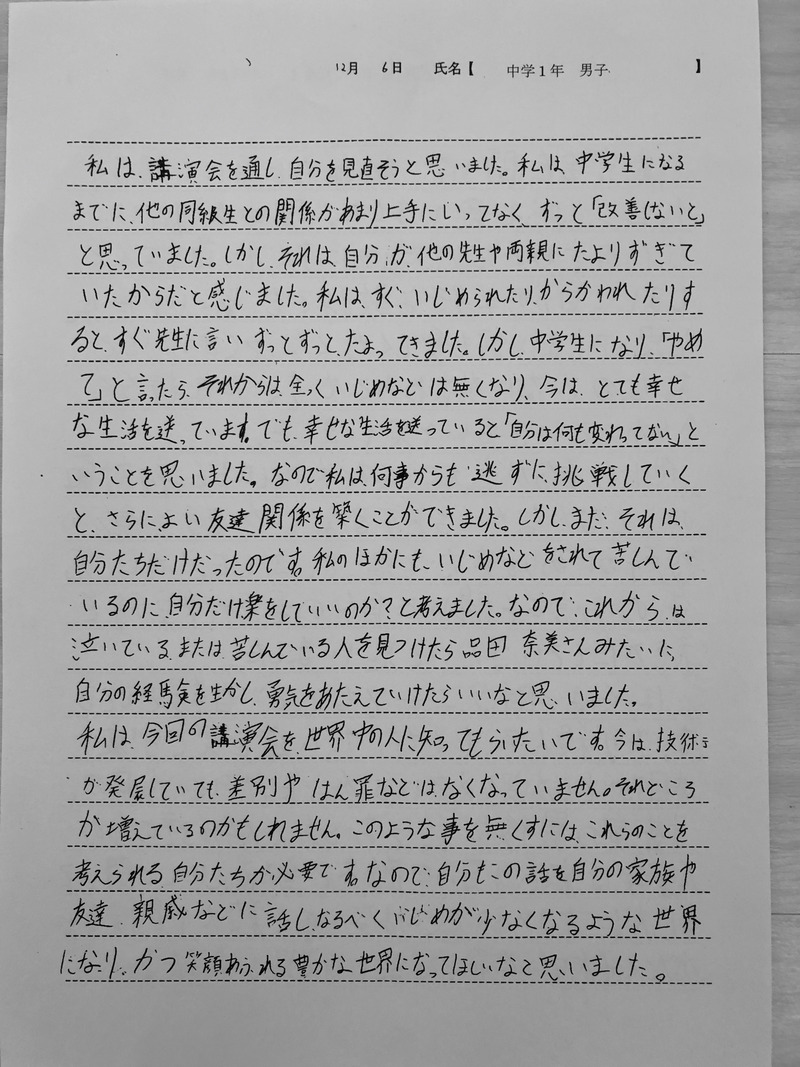 12月 6日 氏名【 中学1年 男子 】
私は、講演会を通し、自分を見直そうと思いました。私は、中学生になる
までに、他の同級生との関係があまり上手にいってなく、ずっと「改善しないと」
と思っていました。しかし、それは、自分が、他の先生や両親にたよりすぎて
いたからだと感じました。私は、すぐ、いじめられたり、からかわれたりす
ると、すぐ先生に言いずっとずっと、たよってきました。しかし、中学生になり、「やめ
て」と言ったら、それからは、全くいじめなどは無くなり、今は、とても幸せ
な生活を送っています。でも、幸せな生活を送っていると「自分は何も変わってない」と
いうことを思いました。なので私は、何事からも逃ずに、挑戦していく
と、さらに、よい友達関係を築くことができました。しかし、まだ、それは、
自分たちだけだったのです。私のほかにも、いじめなどをされて苦しんで
いるのに、自分だけ楽をしていいのか？と考えました。なので、これからは
泣いている、または苦しんでいる人を見つけたら品田奈美さんみたいに、
自分の経験を生かし、勇気をあたえていけたらいいなと思いました。
私は、今回の講演会を、世界中の人に知ってもらいたいです。今は、技術
が発展していても、差別やはん罪などは、なくなっていません。それどころ
か増えているのかもしれません。このような事を無くすには、これらのことを
考えられる自分たちが必要です。なので、自分もこの話を自分の家族や
友達、親戚などに話し、なるべくいじめが少なくなるような世界
になり、かつ笑顔あふれる豊かな世界になってほしいなと思いました。